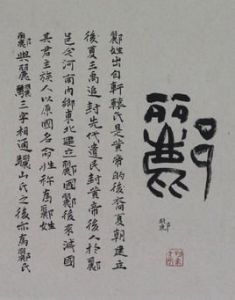 酈
酈姓出自軒轅氏是黃帝的後裔夏朝建立
後夏王禹追封先代遺民封黃帝後人於酈
邑今河南内鄉東北建立酈國酈後來滅國
其君主族人以原國名命姓称為酈姓
酈與麗驪三字相通驪山氏之後亦為酈氏